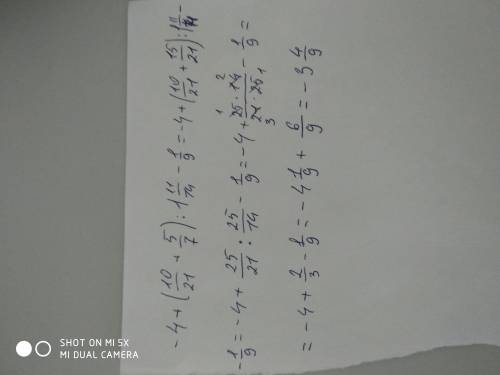 -4+(10/21+5/7):1 11/14-1/9=-4+(10/21+15/21):1 11/14-
-1/9=-4+25/21:25/14-1/9=-4+25·14/21·25-1/9=
=-4+2/3-1/9=-4 1/9+6/9=-3 4/9
SHOT ON MI 5X
MI DUAL CAMERA